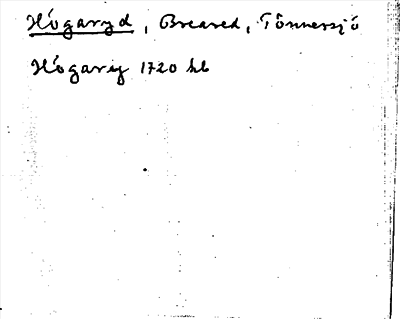 Högaryd, Breared, Tönnersjö
Högarÿ 1720 hb